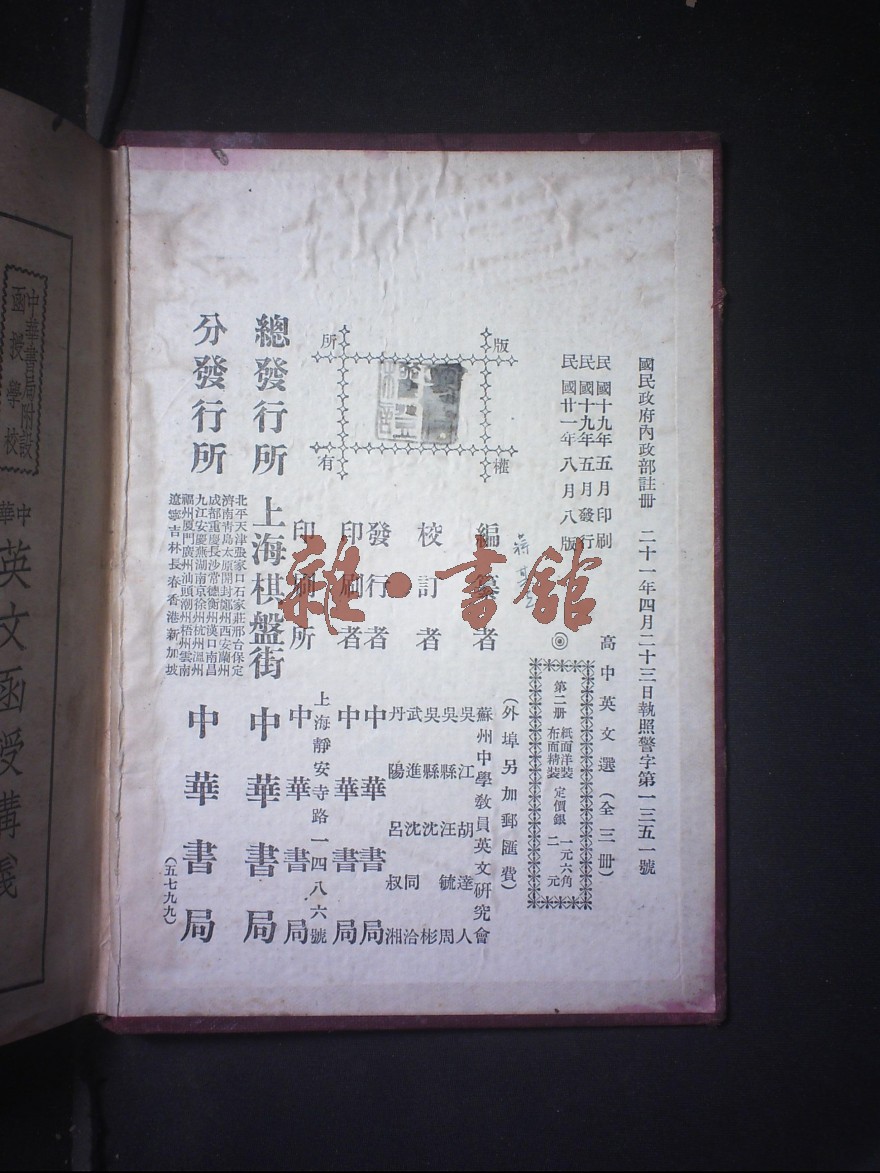 國民政府內政部註册 二十一年四月二十三日執照警字第一三五一號
民國十九年五月印刷
民國十九年五月發行
民國廿一年八月八版
高中英文選(全三册)
第二册 紙面洋裝 定價銀 一元六角
布面精裝 二元
(外埠另加郵匯費)
版權所有
編纂者 蘇州中學教員英文研究會
校訂者 吳江胡達人
吳縣汪毓周
吳縣沈彬
武進沈同洽
丹陽呂叔湘
發行者 中華書局
印刷者 中華書局
印刷所 上海靜安寺路一四八六號
中華書局
總發行所 上海棋盤街 中華書局
分發行所 中華書局
北平天津張家口石家莊邢台保定
濟南青島太原開封鄭州西安蘭州
成都重慶長沙常德衡州漢口南昌
九江安慶蕪湖南京徐州杭州溫州
福州厦門廣州汕頭潮州梧州雲南
遼寧吉林長春香港新加坡
(五七九九)
雜·書館
中華書局附設
函授學校
中華
英文函授講義